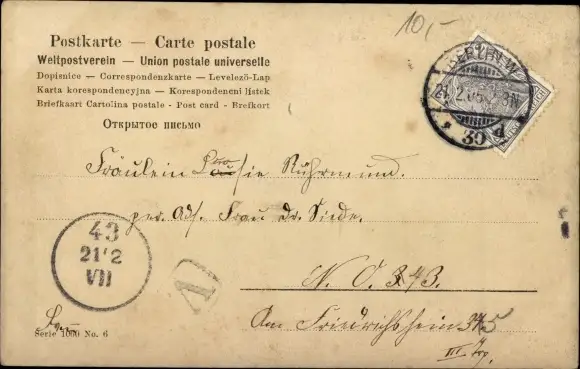 10,-
Postkarte — Carte postale
Weltpostverein — Union postale universelle
Dopisnice — Correspondenzkarte — Levelező-Lap
Karta korespondencyjna — Korespondencni listek
Briefkaart Cartolina postale - Post card - Brefkort
Открытое письмо
BERLIN W
21.2.05. 3N
* 30 d
Fräulein Ruhrmund.
per Ads. Frau Dr. Siede.
N. O. 43.
Am Friedrichshain
III. Trp.
43
21/2
VII
Serie 1000 No. 6